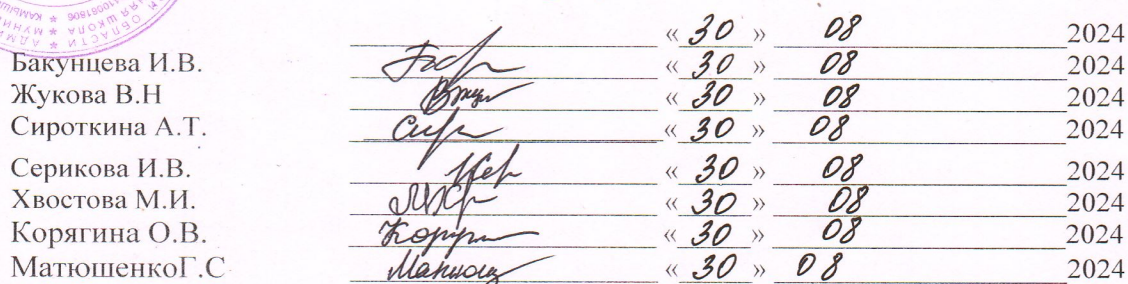 « 30 » 08 2024
Бакунцева И.В. « 30 » 08 2024
Жукова В.Н « 30 » 08 2024
Сироткина А.Т. « 30 » 08 2024
Серикова И.В. « 30 » 08 2024
Хвостова М.И. « 30 » 08 2024
Корягина О.В. « 30 » 08 2024
МатюшенкоГ.С « 30 » 08 2024